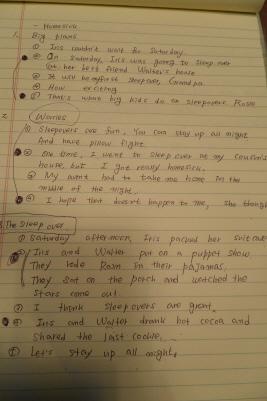 - Homesick
1. Big plans
① Iris couldn't wait for Saturday.
② On Saturday, Iris was going to sleep over
at her best friend Walter's house
③ It will be my first sleepover, Grandpa.
④ How exciting
⑤ That's what big kids do on sleepovers, Rosie
2. Worries
① Sleepovers are fun. You can stay up all night
And have pillow fight.
② One time, I went to sleep over at my cousin's
house, but I got really homesick.
③ My aunt had to take me home in the
middle of the night.
④ I hope that doesn't happen to me, she thought
3. The Sleep over
① Saturday afternoon, Iris packed her suitcase
② Iris and Walter put on a puppet show.
They rode Rain in their pajamas.
They sat on the porch and watched the
stars come out.
③ I think sleepovers are great.
④ Iris and Walter drank hot cocoa and
shared the last cookie.
⑤ Let's stay up all night.